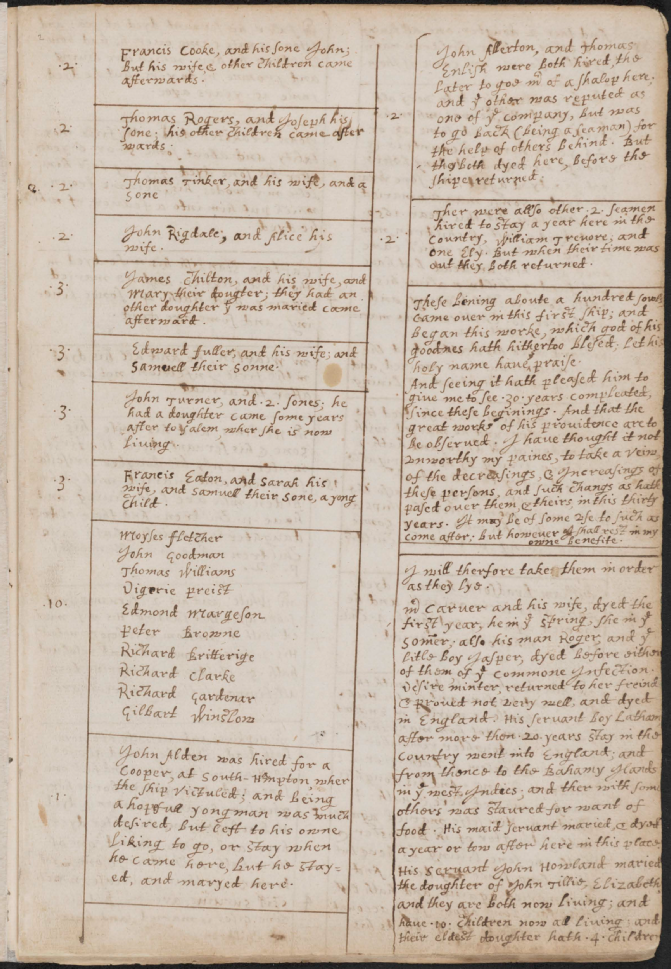 .2. Francis Cooke, and his sone John;
But his wife & other children came
afterwards.
.2. Thomas Rogers, and Joseph his
sone; his other children came after
wards.
2. .2. Thomas Tinker, and his wife, and a
sone
.2. John Rigdale, and Alice his
wife.
.3. James Chilton, and his wife, and
Mary their dougter; they had an
other doughter yt was maried came
afterward.
.3. Edward fuller, and his wife; and
Samuell their sonne.
.3. John Turner, and .2. sones; he
had a doughter came some years
after to Salem wher she is now
living.
.3. Francis Eaton, and Sarah his
wife, and Samuell their sone, a yong
child.
.10. Moyses fletcher
John Goodman
Thomas Williams
Digerie Preist
Edmond Margeson
Peter Browne
Richard Britterige
Richard Clarke
Richard Gardenar
Gilbart Winslow
.1. John Alden was hired for a
Cooper, at South-Hampton wher
the ship victuled; and being
a hopfull yongman was much
desired, but left to his owne
liking to go, or stay when
he came here, but he stay-
ed, and maryed here.
.2. John Allerton, and Thomas
Enlish were both hired, the
later to goe mr of a shalop here,
and ye other was reputed as
one of ye company, but was
to go back (being a seaman) for
the help of others behind. But
they both dyed here, before the
shipe returned.
.2. Ther were allso other .2. seamen
hired to stay a year here in the
Country, William Trevore; and
one Ely. But when their time was
out they both returned.
These bening aboute a hundred sowls
came over in this first ship; and
began this worke, which god of his
goodnes hath hithertoo blesed; let his
holy name have praise.
And seeing it hath pleased him to
give me to see .30. years compleated,
since these beginings. And that the
great works of his providence are to
be observed. I have thought it not
unworthy my paines, to take a veiw
of the decreasings, & Increasings of
these persons, and such changs as hath
pased over them, & theirs in this thirty
years. It may be of some use to such as
come after; but however I shall rest in my
owne benefite.
I will therfore take them in order
as they lye.
mr Carver and his wife, dyed the
first year, he in ye spring, she in ye
somer; also his man Roger, and ye
litle boy Jasper, dyed before either
of them of ye commone Infection.
Desire minter, returned to her freind
& proved not very well, and dyed
in England. His servant boy Latham
after more then 20 years stay in the
Country went into England; and
from thence to the Bahamy Ilands
in ye west Indies; and ther with some
others was starved for want of
food. His maid servant maried, & dyed
a year or tow after here in this place.
His servant John Howland maried
the doughter of John Tillie, Elizabeth
and they are both now living; and
have .10. children now all living; and
their eldest doughter hath .4. children